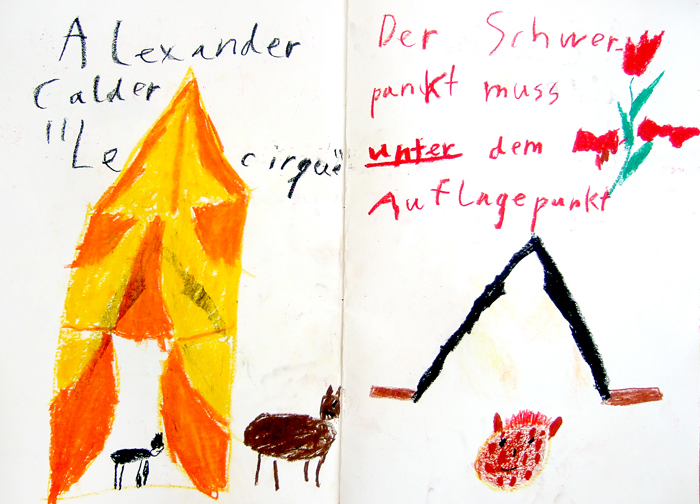 Alexander
Calder
"Le cirque"
Der Schwer-
punkt muss
unter dem
Auflagepunkt